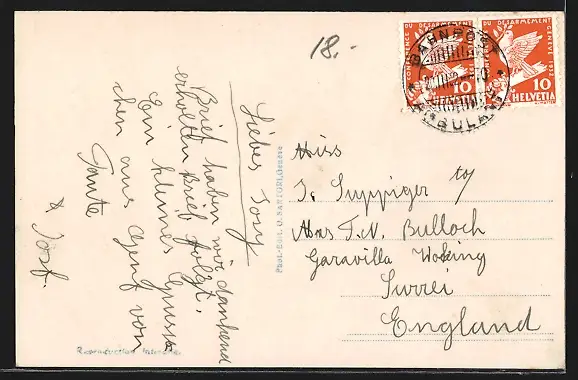 18.-
CONFERENCE DU DESARMEMENT GENEVE 1932
10
HELVETIA
DU DESARMEMENT GENEVE 1932
10
HELVETIA
BAHNPOST
AMBULANT
Liebes Josy
Brief haben wir dankend
erhalten Brief folgt.
Ein kleines Grüss
chen aus Genf von
Tante
& Josf.
Phot.-Edit. O. SARTORI, Genève
Miss
J. Suppiger c/o
Mrs T. N. Bulloch
Garavilla Woking
Surrei
England